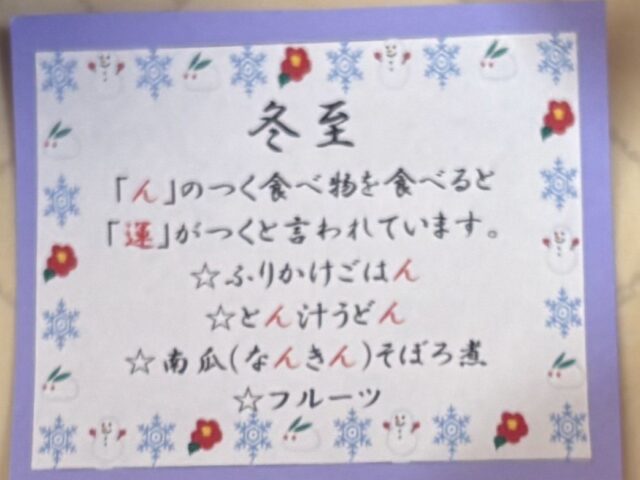 冬至
「ん」のつく食べ物を食べると
「運」がつくと言われています。
☆ふりかけごはん
☆とん汁うどん
☆南瓜(なんきん)そぼろ煮
☆フルーツ